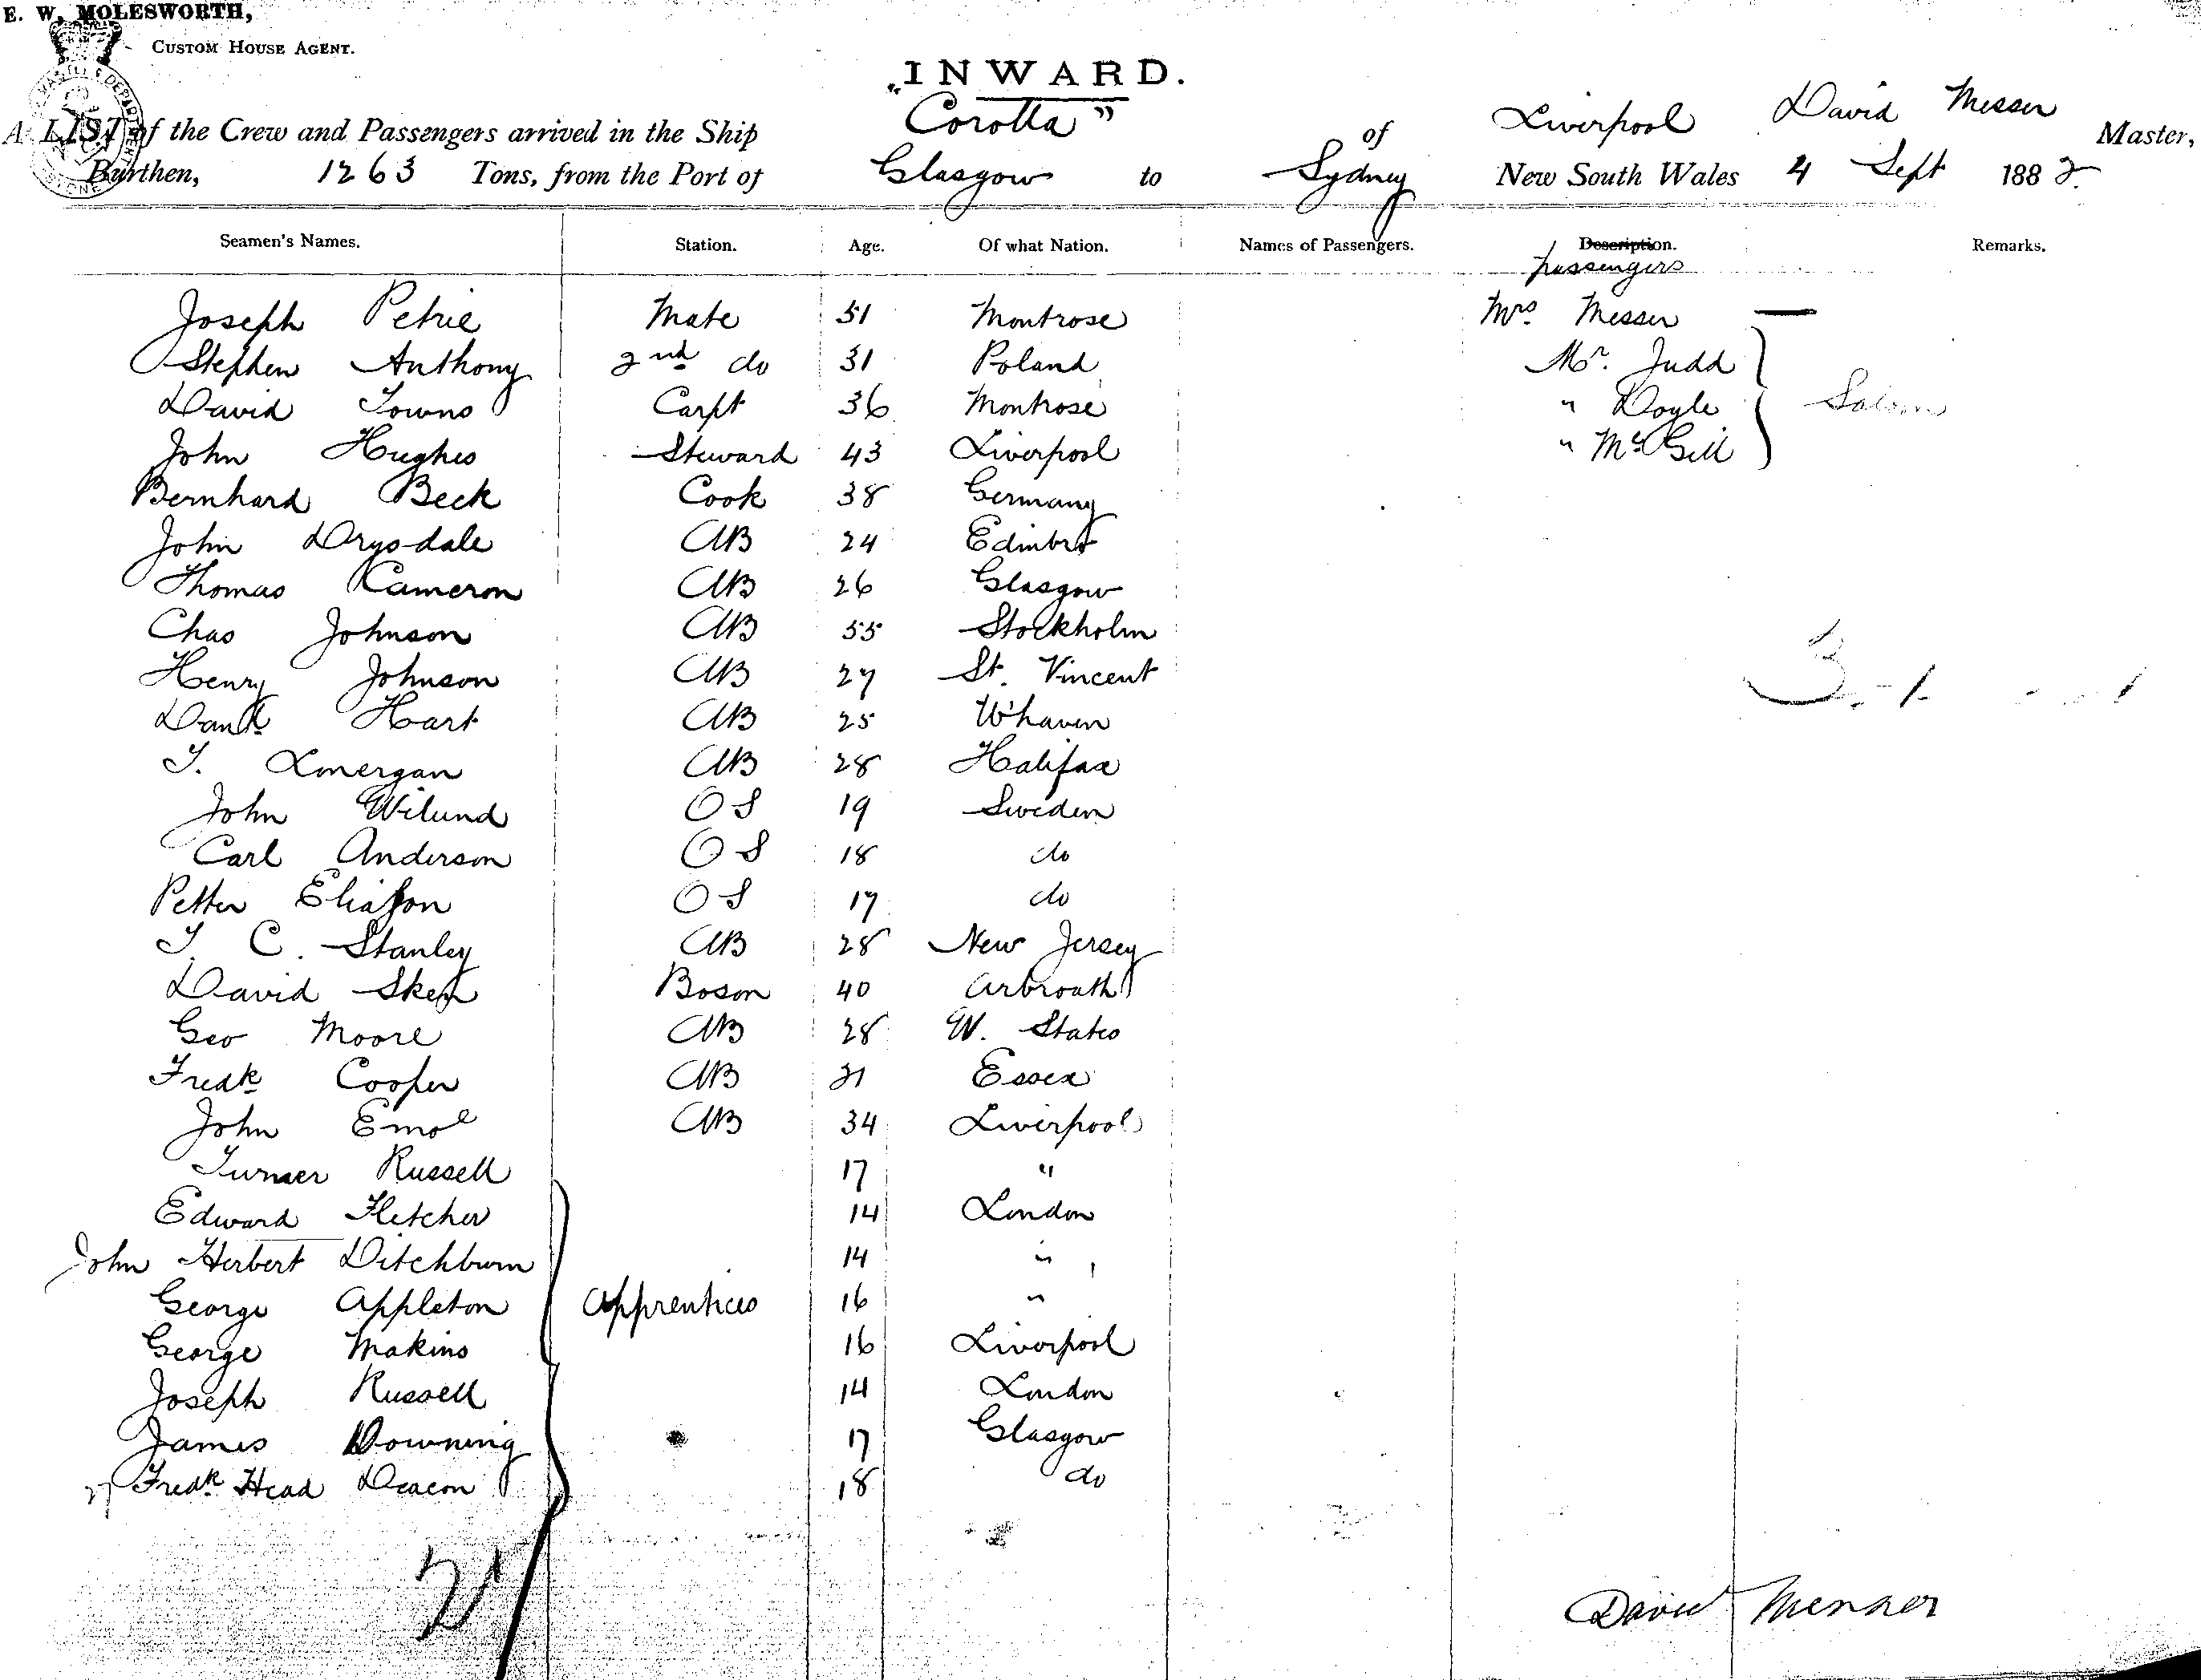 E. W. MOLESWORTH,
CUSTOM HOUSE AGENT.
INWARD.
A LIST of the Crew and Passengers arrived in the Ship "Corolla" of Liverpool David Messer Master,
Burthen, 1263 Tons, from the Port of Glasgow to Sydney New South Wales 4 Sept 1882.
Seamen's Names. Station. Age. Of what Nation. Names of Passengers. Description. Remarks.
passengers
Joseph Petrie Mate 51 Montrose Mrs. Messer —
Stephen Anthony 2nd do 31 Poland Mr. Judd
David Towns Carpt 36 Montrose " Doyle Saloon
John Hughes Steward 43 Liverpool " McGill
Bernhard Beck Cook 38 Germany
John Drysdale AB 24 Edinbro
Thomas Cameron AB 26 Glasgow
Chas Johnson AB 55 Stockholm
Henry Johnson AB 27 St. Vincent
Danl Hart AB 25 W'haven
T. Lonergan AB 28 Halifax
John Wilund OS 19 Sweden
Carl Anderson OS 18 do
Petter Eliason OS 17 do
T. C. Stanley AB 28 New Jersey
David Sken Boson 40 Arbroath
Geo Moore AB 28 U. States
Fredk Cooper AB 21 Essex
John Emol AB 34 Liverpool
Turner Russell 17 "
Edward Fletcher 14 London
John Herbert Ditchburn 14 "
George Appleton Apprentices 16 "
George Makins 16 Liverpool
Joseph Russell 14 London
James Downing 17 Glasgow
27 Fredk Head Deacon 18 do
David Messer